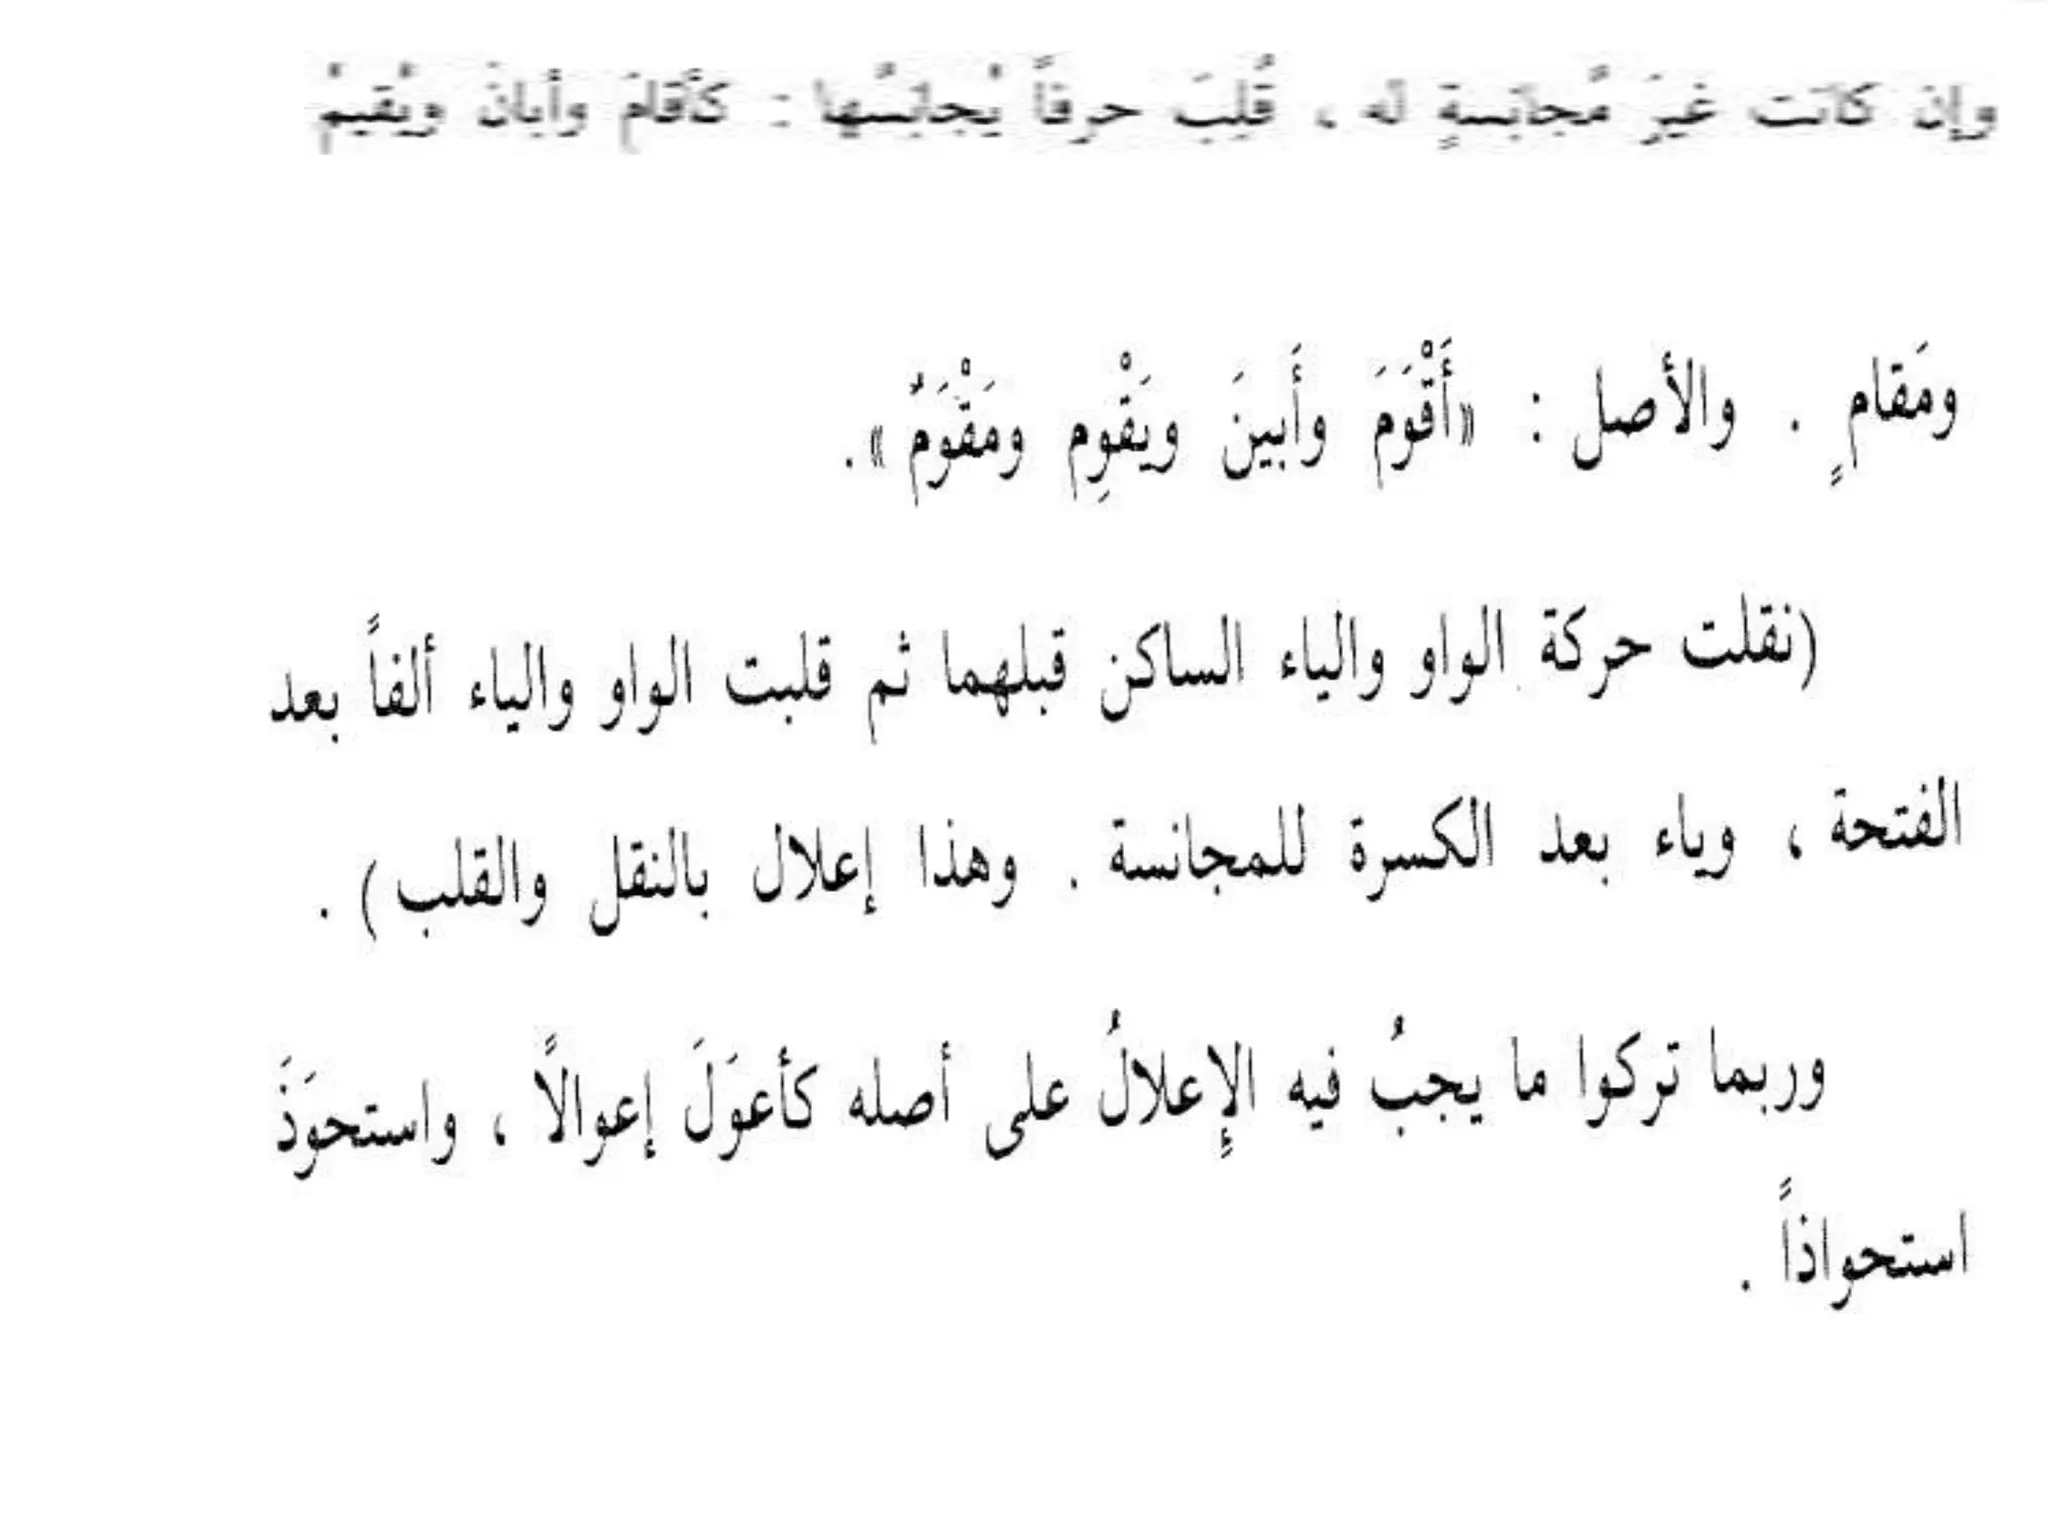 وإن كانت غيرَ مُجانسةٍ له ، قُلِبَ حرفاً يُجانسُها : كأقامَ وأبانَ ويُقيمُ
ومَقامٍ . والأصل : «أَقْوَمَ وأَبينَ ويَقْوِم ومَقْوَمٌ» .
(نقلت حركة الواو والياء الساكن قبلهما ثم قلبت الواو والياء ألفاً بعد
الفتحة ، وياء بعد الكسرة للمجانسة . وهذا إعلال بالنقل والقلب) .
وربما تركوا ما يجبُ فيه الإِعلالُ على أصله كأعوَلَ إعوالاً ، واستحوَذَ
استحواذاً .